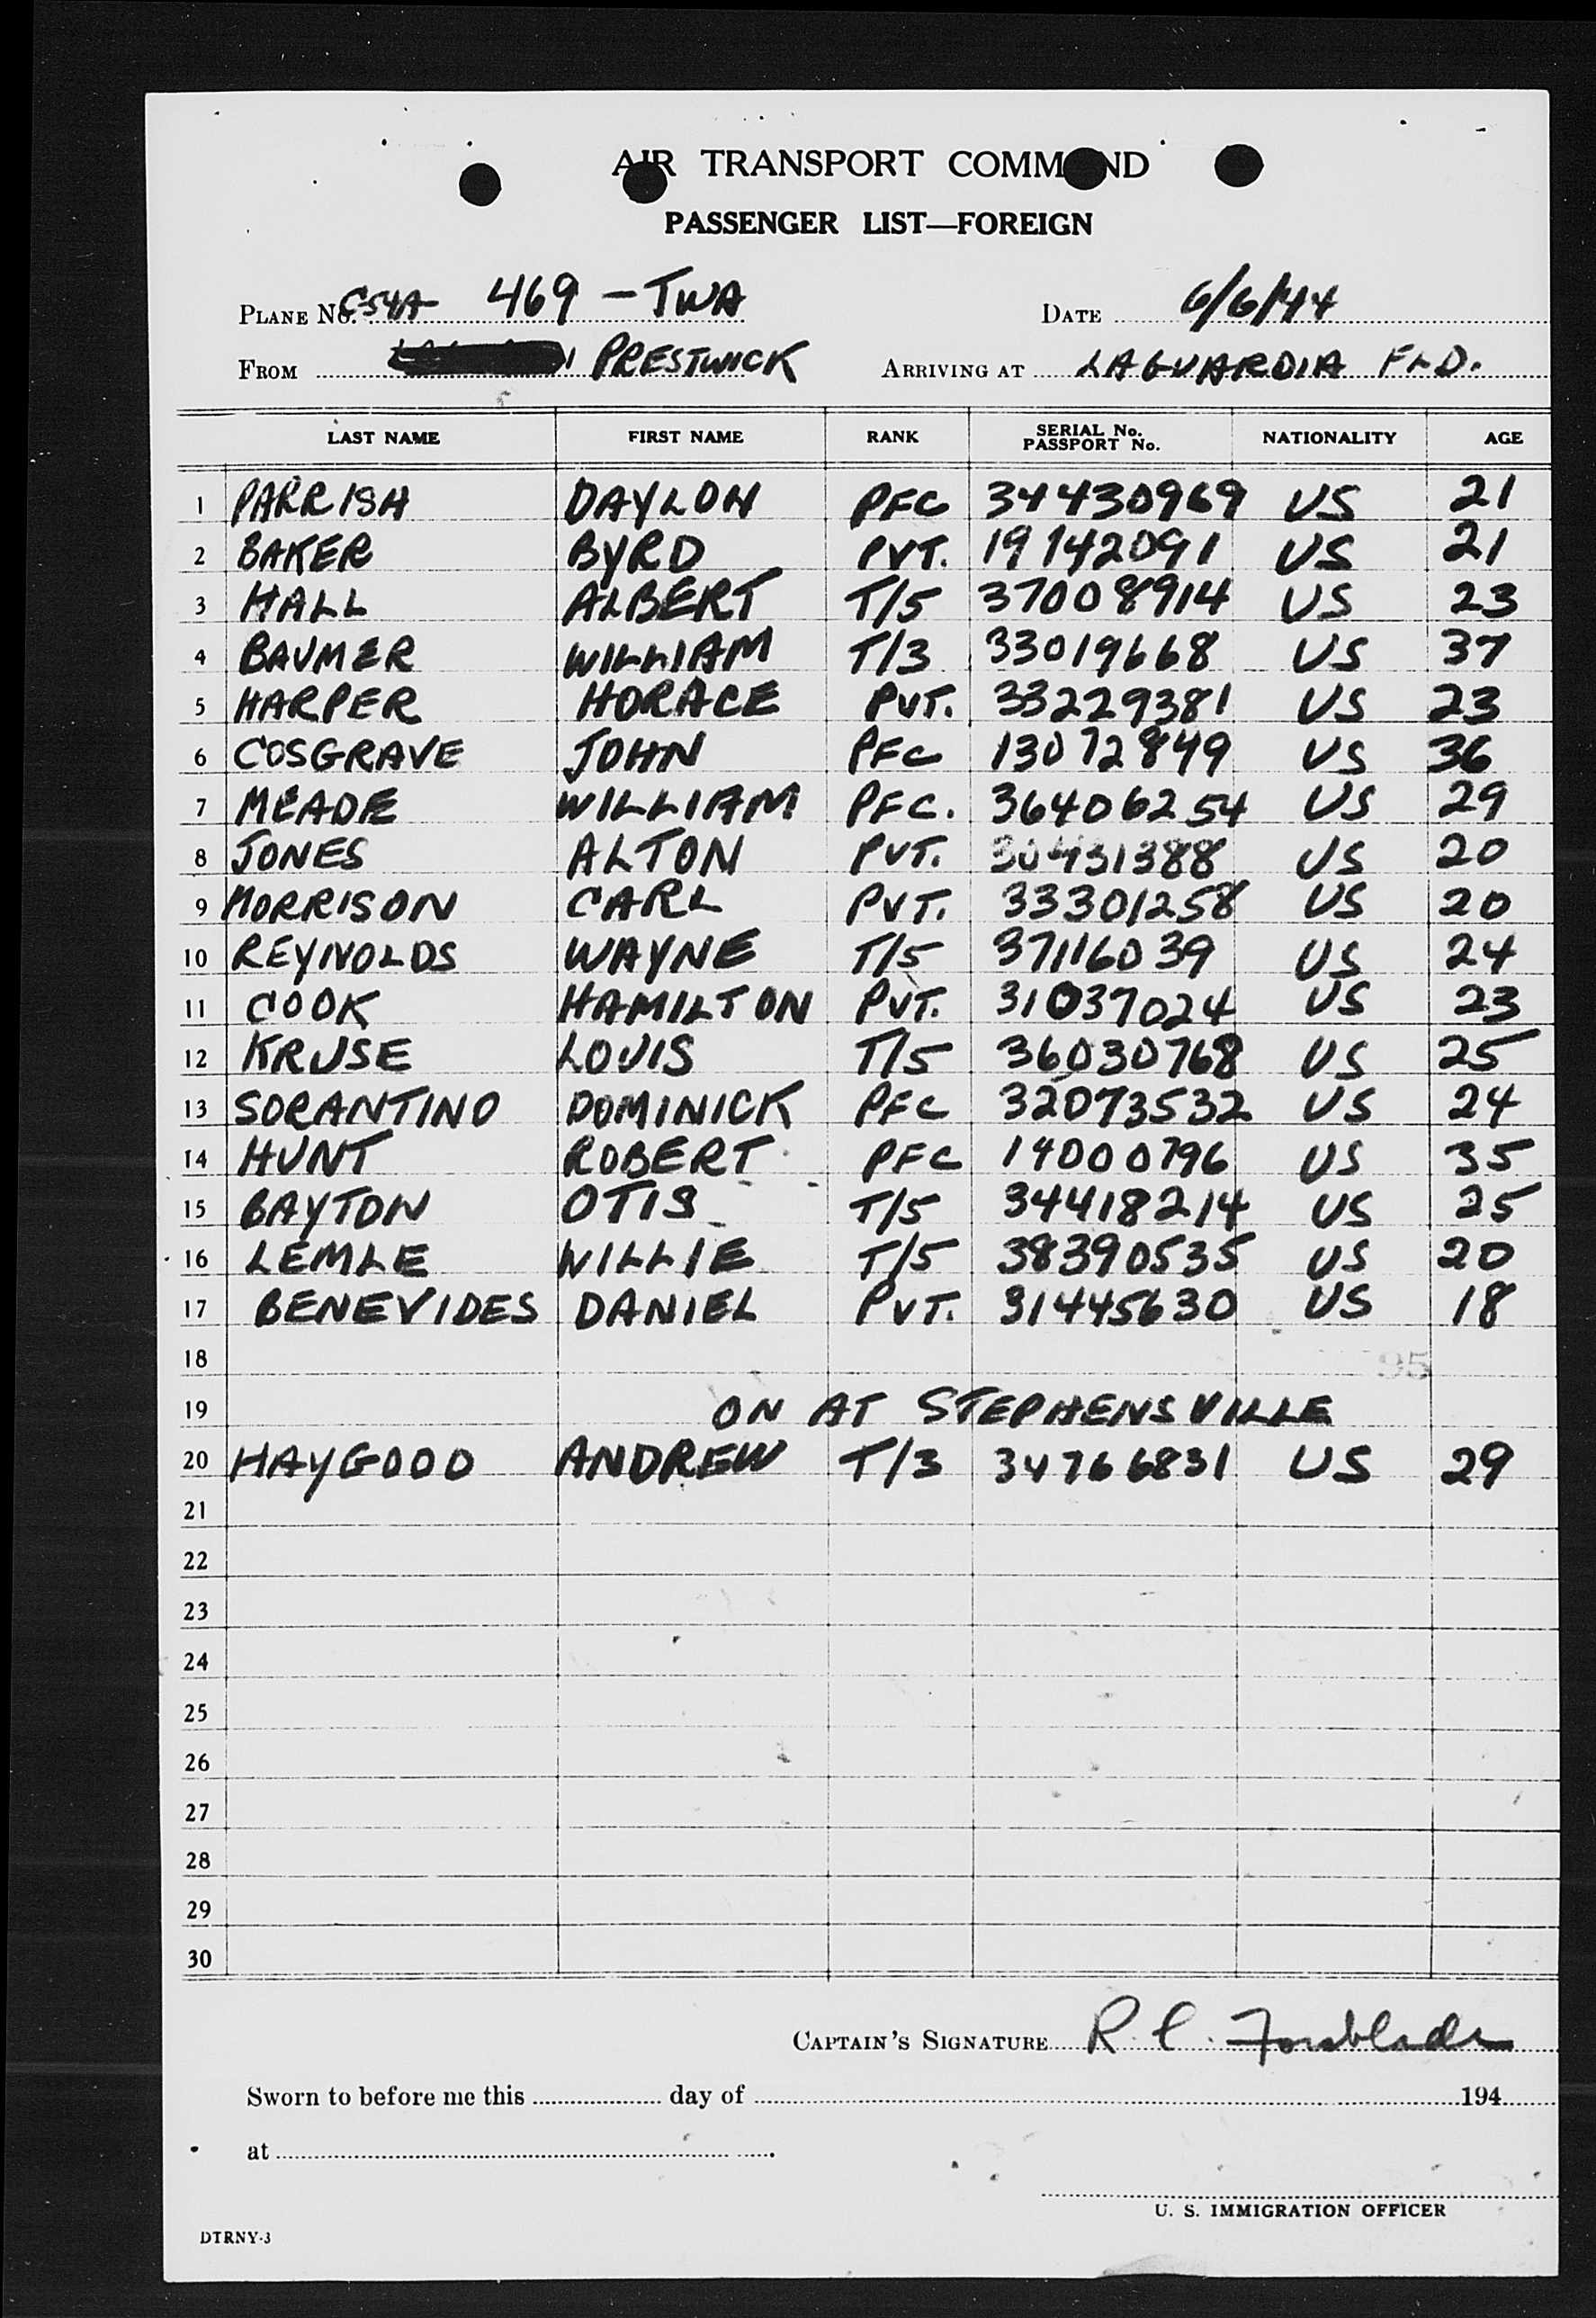 AIR TRANSPORT COMMAND
PASSENGER LIST—FOREIGN
PLANE No. C54A 469 - TWA DATE 6/6/44
FROM PRESTWICK ARRIVING AT LAGUARDIA FLD.
LAST NAME FIRST NAME RANK SERIAL No. PASSPORT No. NATIONALITY AGE
1 PARRISH DAYLON PFC 34430969 US 21
2 BAKER BYRD PVT. 19142091 US 21
3 HALL ALBERT T/5 37008914 US 23
4 BAUMER WILLIAM T/3 33019668 US 37
5 HARPER HORACE PVT. 33229381 US 23
6 COSGRAVE JOHN PFC 13072849 US 36
7 MEADE WILLIAM PFC. 36406254 US 29
8 JONES ALTON PVT. 30431388 US 20
9 MORRISON CARL PVT. 33301258 US 20
10 REYNOLDS WAYNE T/5 37116039 US 24
11 COOK HAMILTON PVT. 31037024 US 23
12 KRUSE LOUIS T/5 36030768 US 25
13 SORANTINO DOMINICK PFC 32073532 US 24
14 HUNT ROBERT PFC 14000796 US 35
15 BAYTON OTIS T/5 34418214 US 25
16 LEMLE WILLIE T/5 38390535 US 20
17 BENEVIDES DANIEL PVT. 31445630 US 18
18
19 ON AT STEPHENSVILLE
20 HAYGOOD ANDREW T/3 34766831 US 29
21
22
23
24
25
26
27
28
29
30
CAPTAIN'S SIGNATURE R. C. Forsblade
Sworn to before me this day of 194
at
U. S. IMMIGRATION OFFICER
DTRNY-3